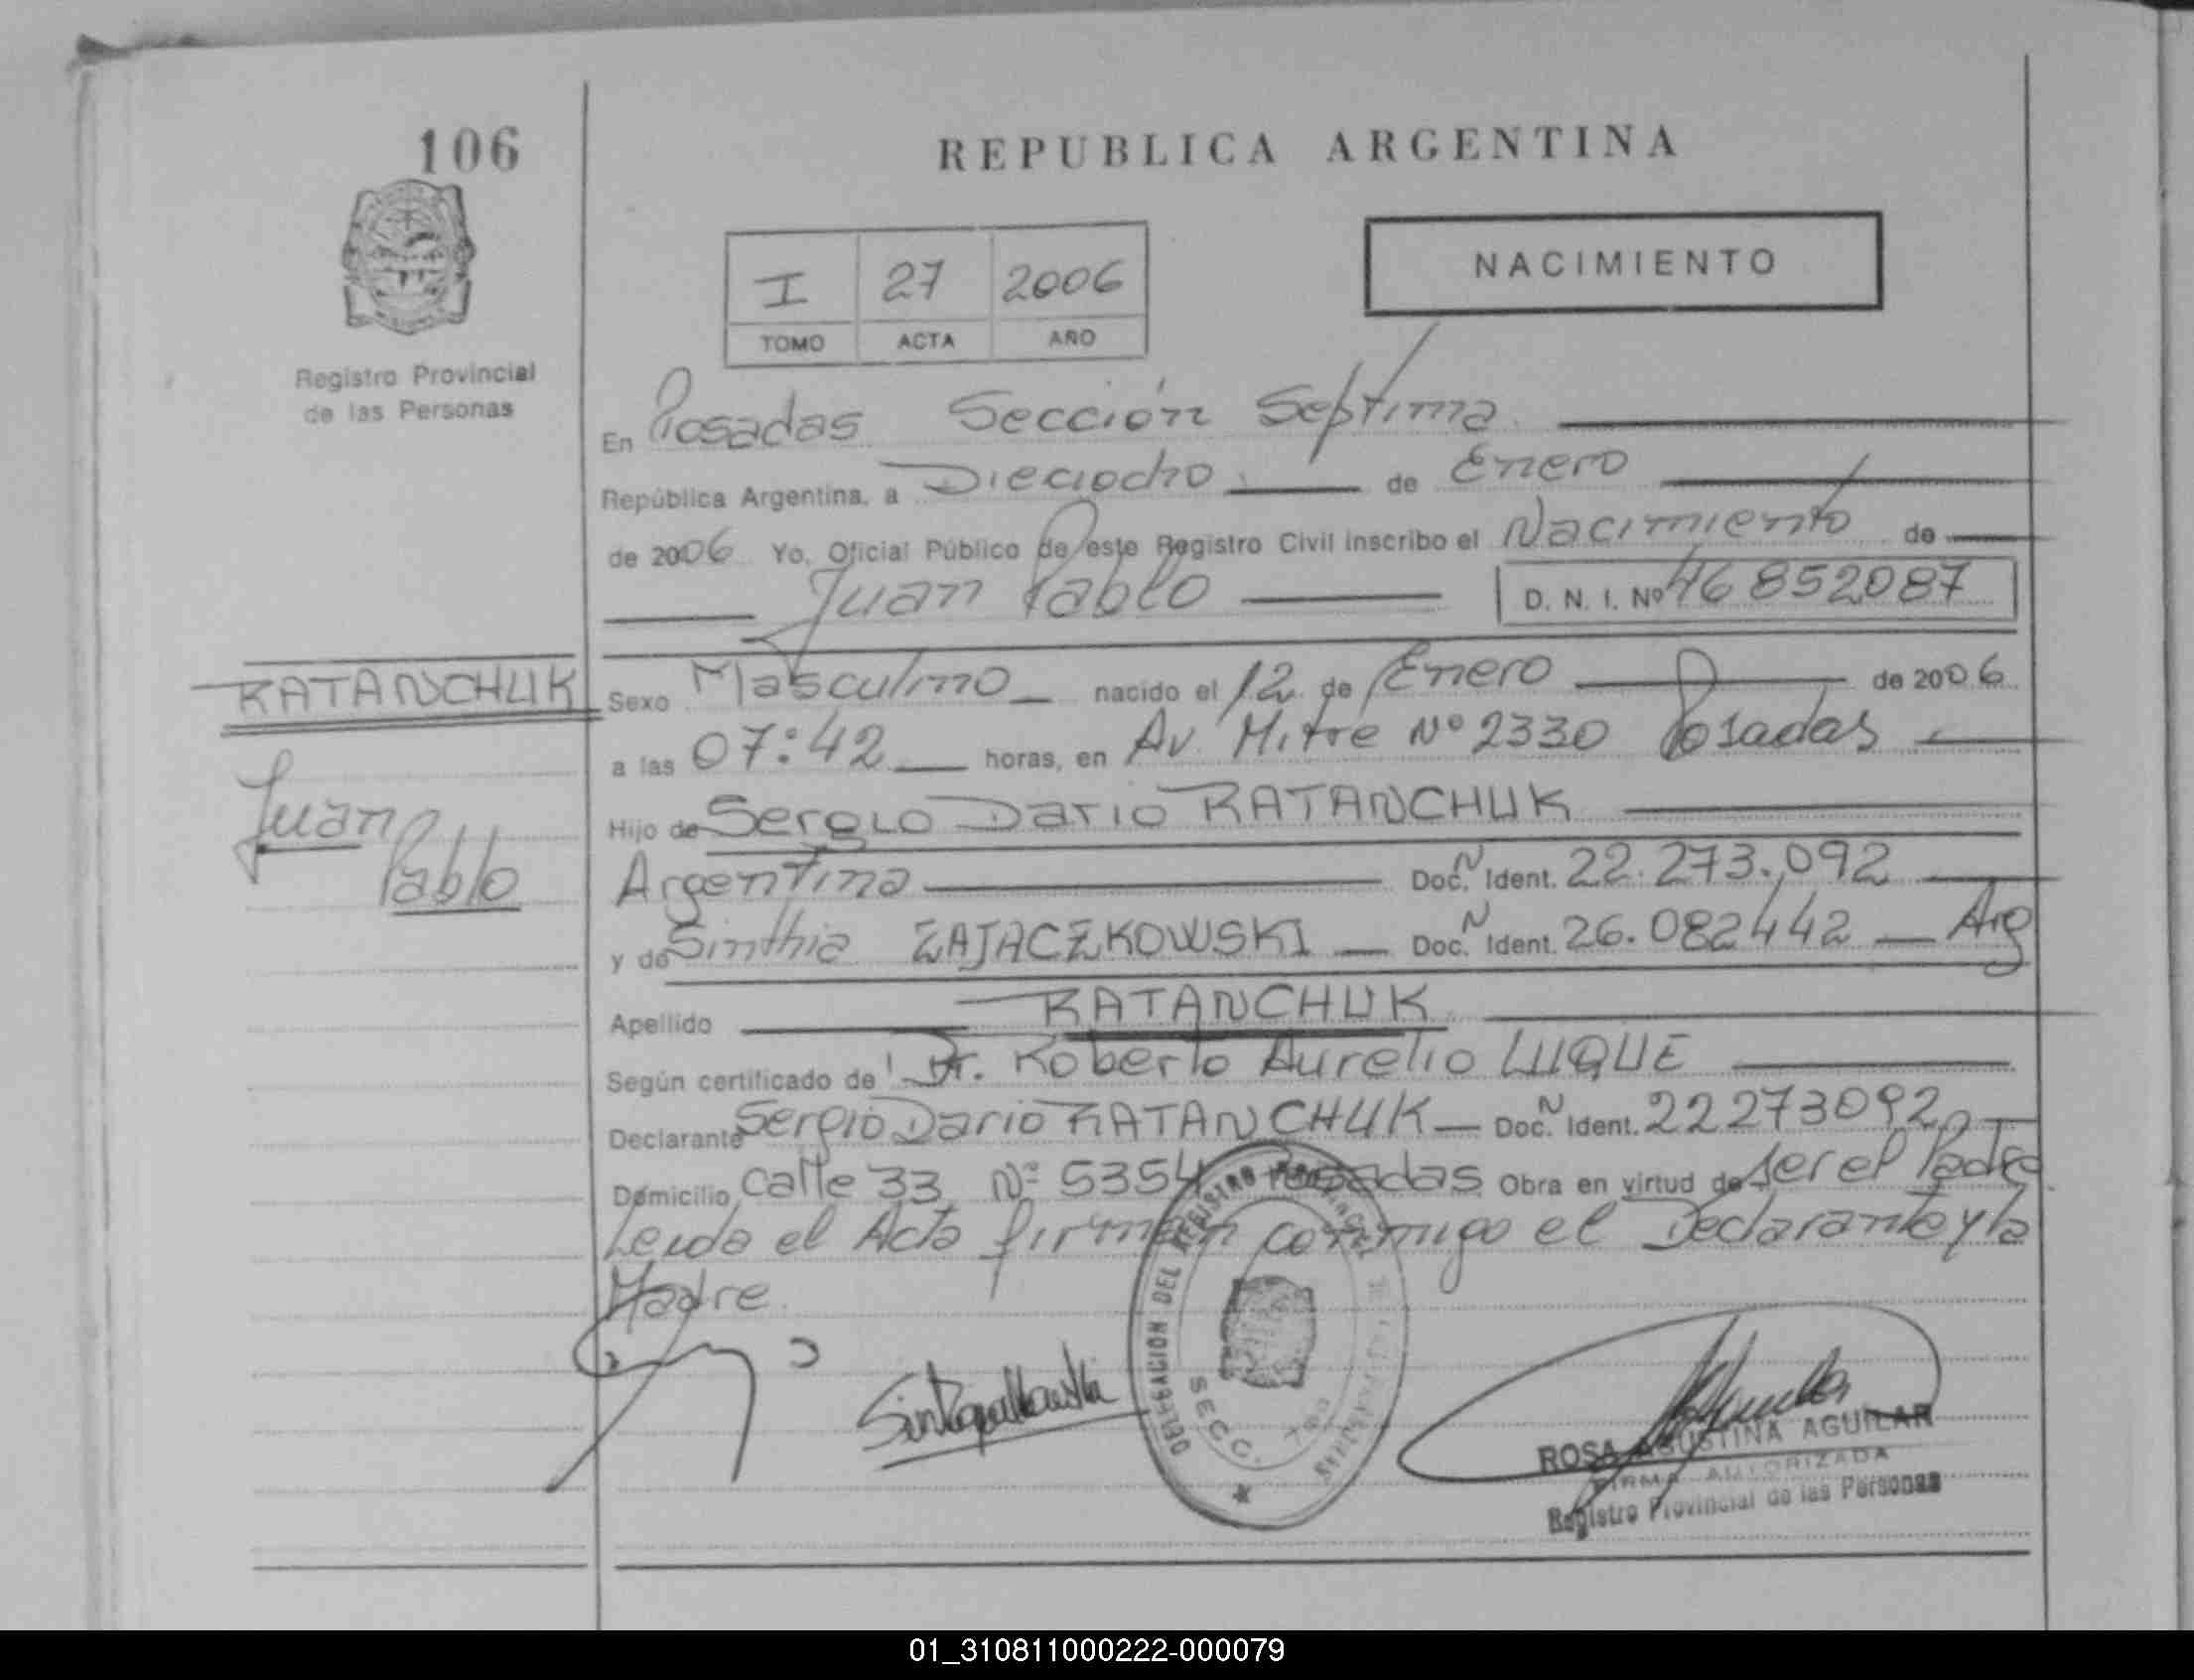 106
REPUBLICA ARGENTINA
NACIMIENTO
I 27 2006
TOMO ACTA AÑO
Registro Provincial
de las Personas
En Posadas Sección Septima
República Argentina, a Dieciocho de Enero
de 2006 Yo, Oficial Público de este Registro Civil inscribo el Nacimiento de
Juan Pablo D. N. I. Nº 46 852087
RATANCHUK
Juan
Pablo
Sexo Masculino nacido el 12 de Enero de 2006
a las 07:42 horas, en Av. Mitre Nº 2330 Posadas
Hijo de Sergio Dario RATANCHUK
Argentina Doc. Ident. 22.273.092
y de Sinthia ZAJACZKOWSKI Doc. Ident. 26.082442 Arg
Apellido RATANCHUK
Según certificado de Dr. Roberto Aurelio LUQUE
Declarante Sergio Dario RATANCHUK Doc. Ident. 22273092
Domicilio Calle 33 Nº 5354 Posadas Obra en virtud de ser el Padre
Leida el Acta firman conmigo el Declarante y la
Madre
DELEGACION DEL REGISTRO PROVINCIAL DE LAS PERSONAS
SECC. 7ma
ROSA AGUSTINA AGUILAR
FIRMA AUTORIZADA
Registro Provincial de las Personas
01_310811000222-000079